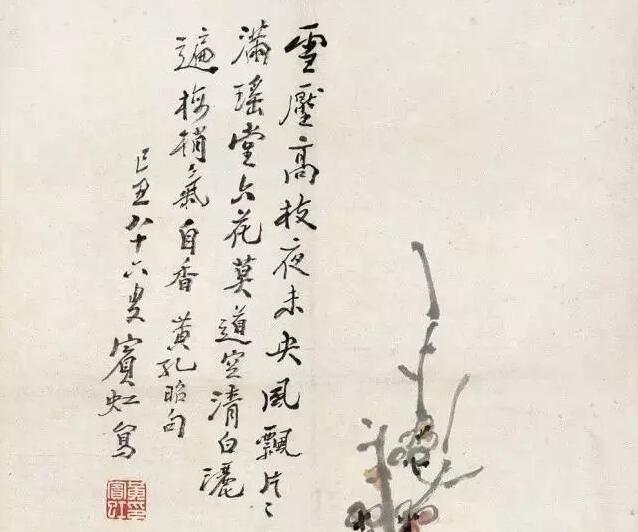 雪壓高枝夜未央風飄片〻
滿瑤堂六花莫道空清白灑
遍梅梢氣自香 黃孔昭句
己丑八十六叟賓虹寫
黃賓虹